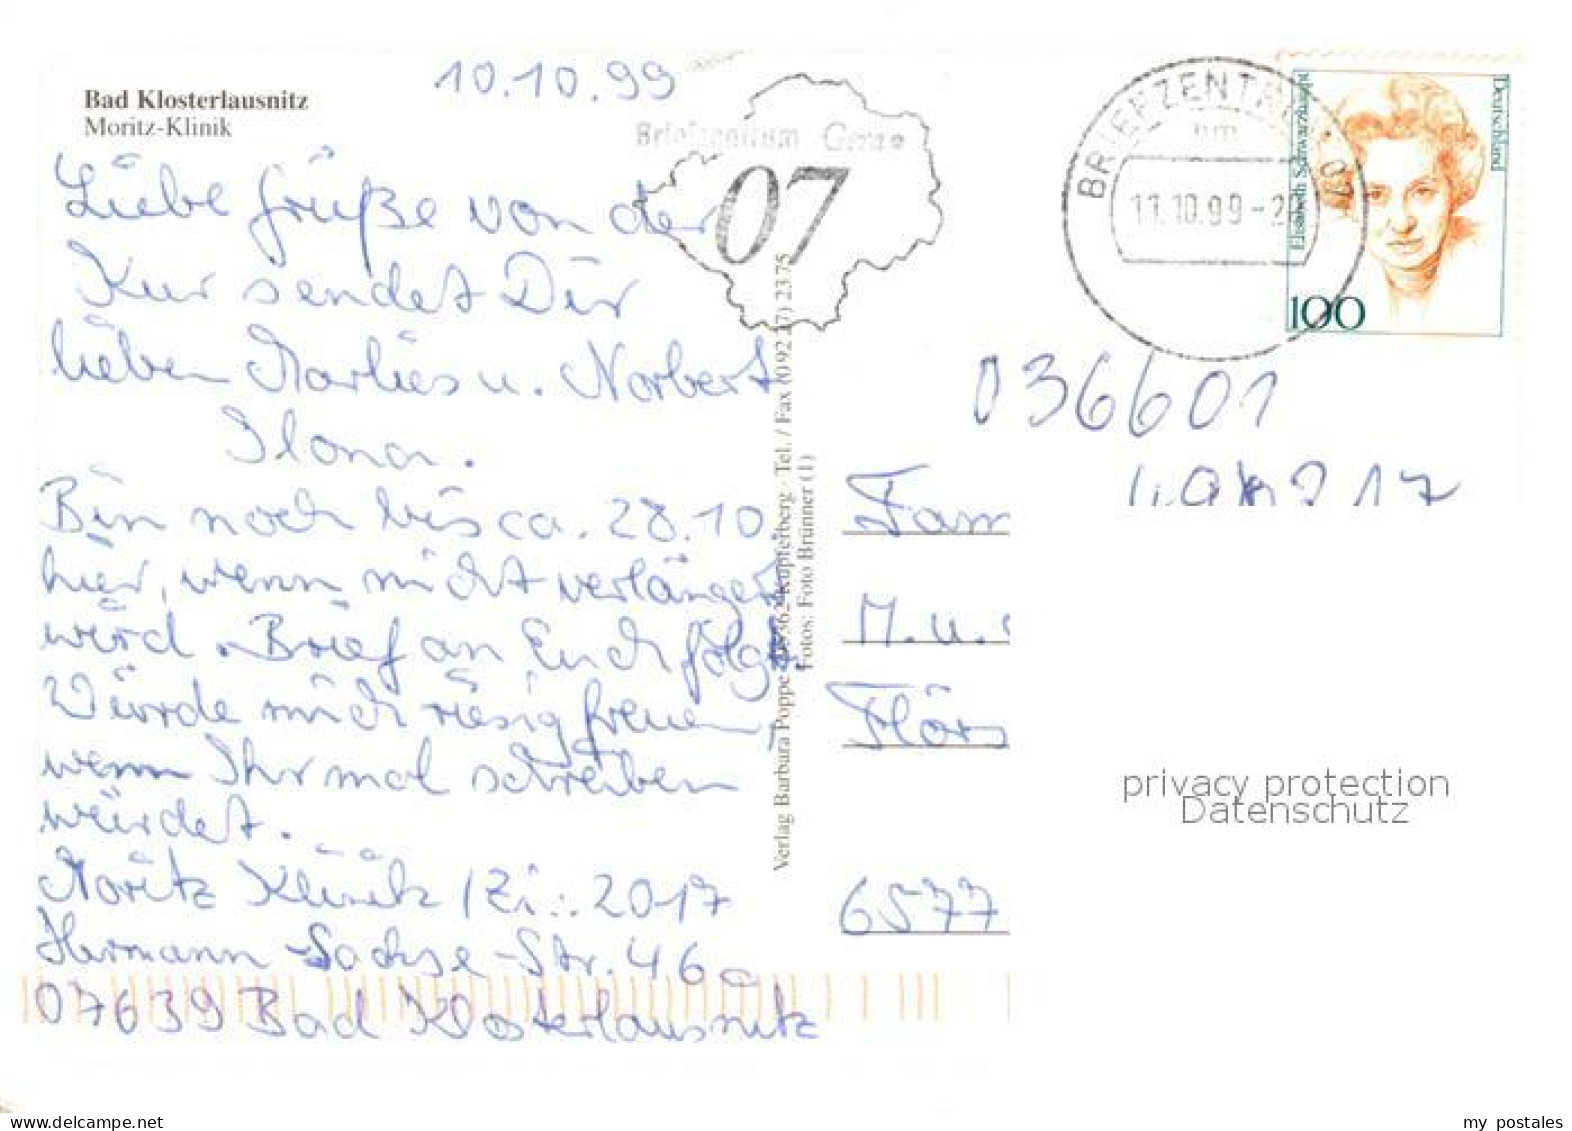 10.10.99
Bad Klosterlausnitz
Moritz-Klinik
Briefzentrum Gera
07
BRIEFZENTRUM 07
11.10.99-2
Deutschland
Elisabeth Schwarzhaupt
100
Liebe Grüße von der
Kur sendet Dir
lieben Marlies u. Norbert
Ilona.
Bin noch bis ca. 28.10.
hier, wenn nicht verlängert
wird. Brief an Euch folgt.
Würde mich riesig freuen,
wenn Ihr mal schreiben
würdet.
Moritz Klinik / Zi.: 2017
Hermann-Sachse-Str. 46 a
07639 Bad Klosterlausnitz
Verlag Barbara Poppe · 95362 Kupferberg · Tel. / Fax (0 92 27) 23 75
Fotos: Foto Brünner (1)
036601
Fam
M. u.
Flörs
6577
privacy protection
Datenschutz
my postales